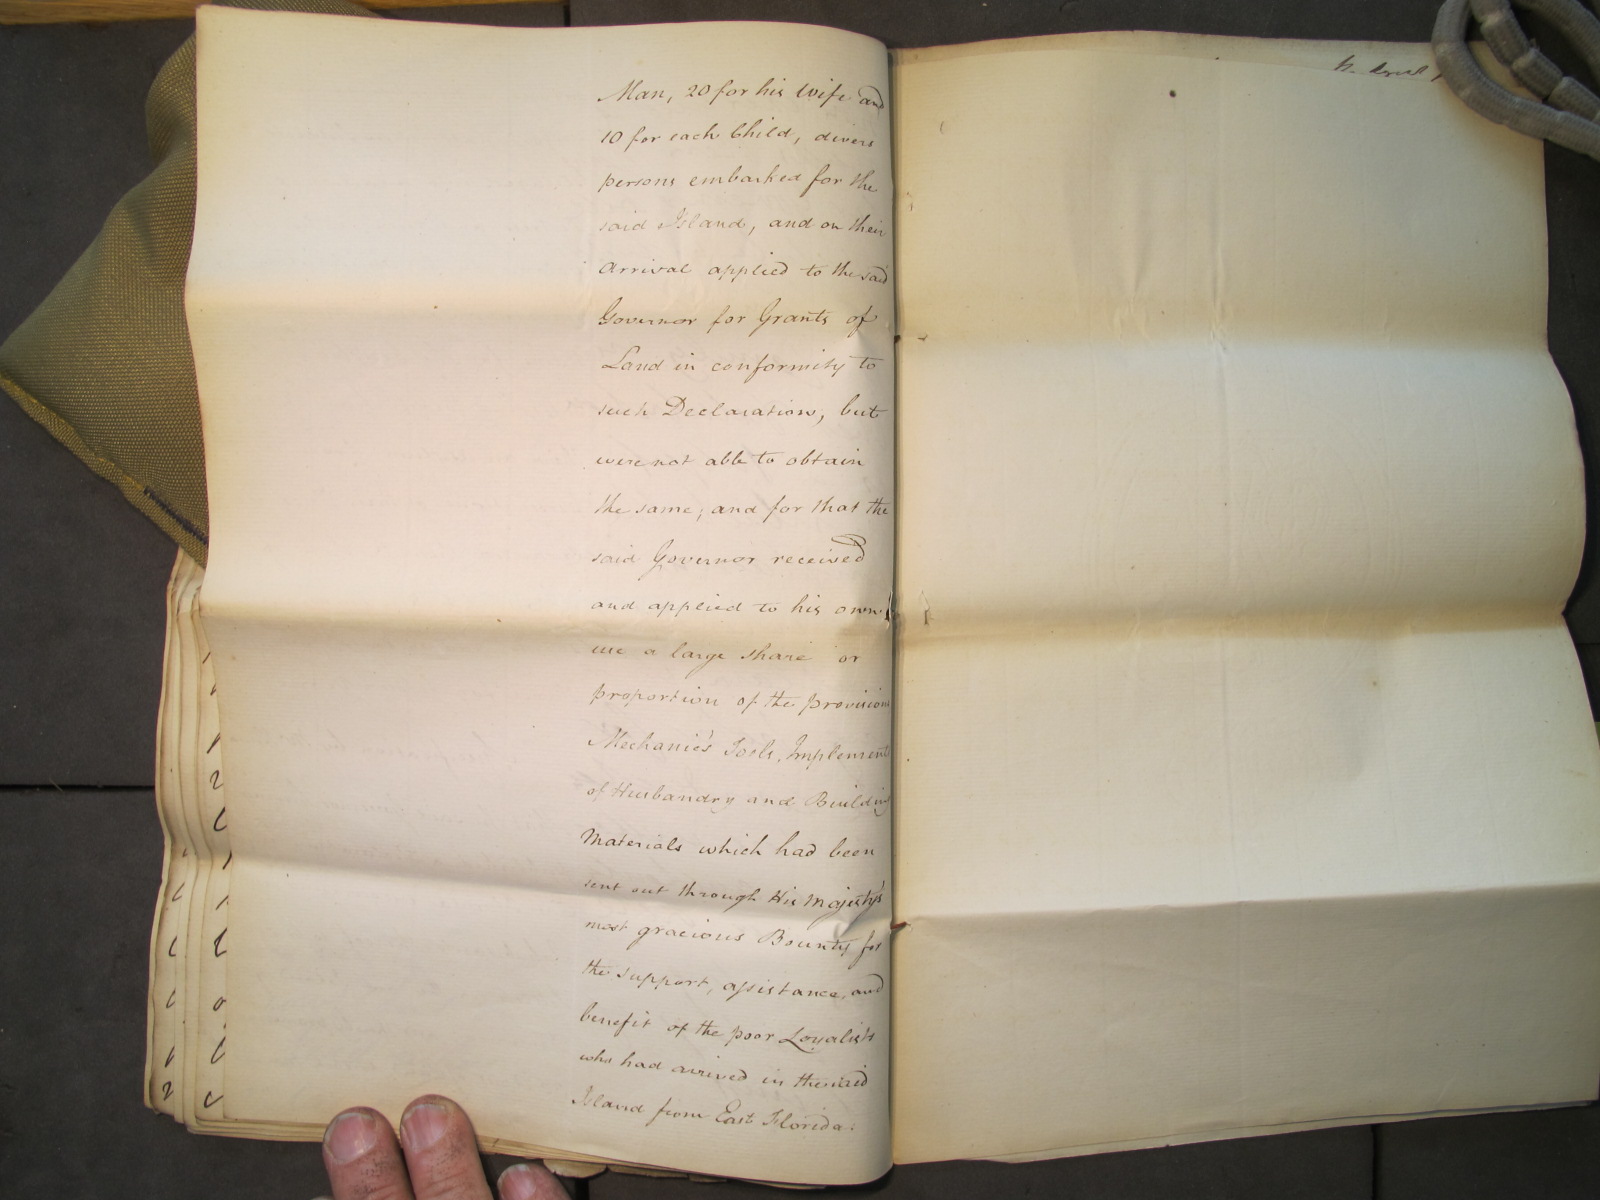 Man, 20 for his Wife and
10 for each Child, divers
persons embarked for the
said Island, and on their
Arrival applied to the said
Governor for Grants of
Land in conformity to
such Declaration, but
were not able to obtain
the same; and for that the
said Governor received
and applied to his own
use a large share or
proportion of the provisions
Mechanic's Tools, Implements
of Husbandry and Building
Materials which had been
sent out through His Majesty's
most gracious Bounty for
the support, assistance, and
benefit of the poor Loyalists
who had arrived in the said
Island from East Florida.